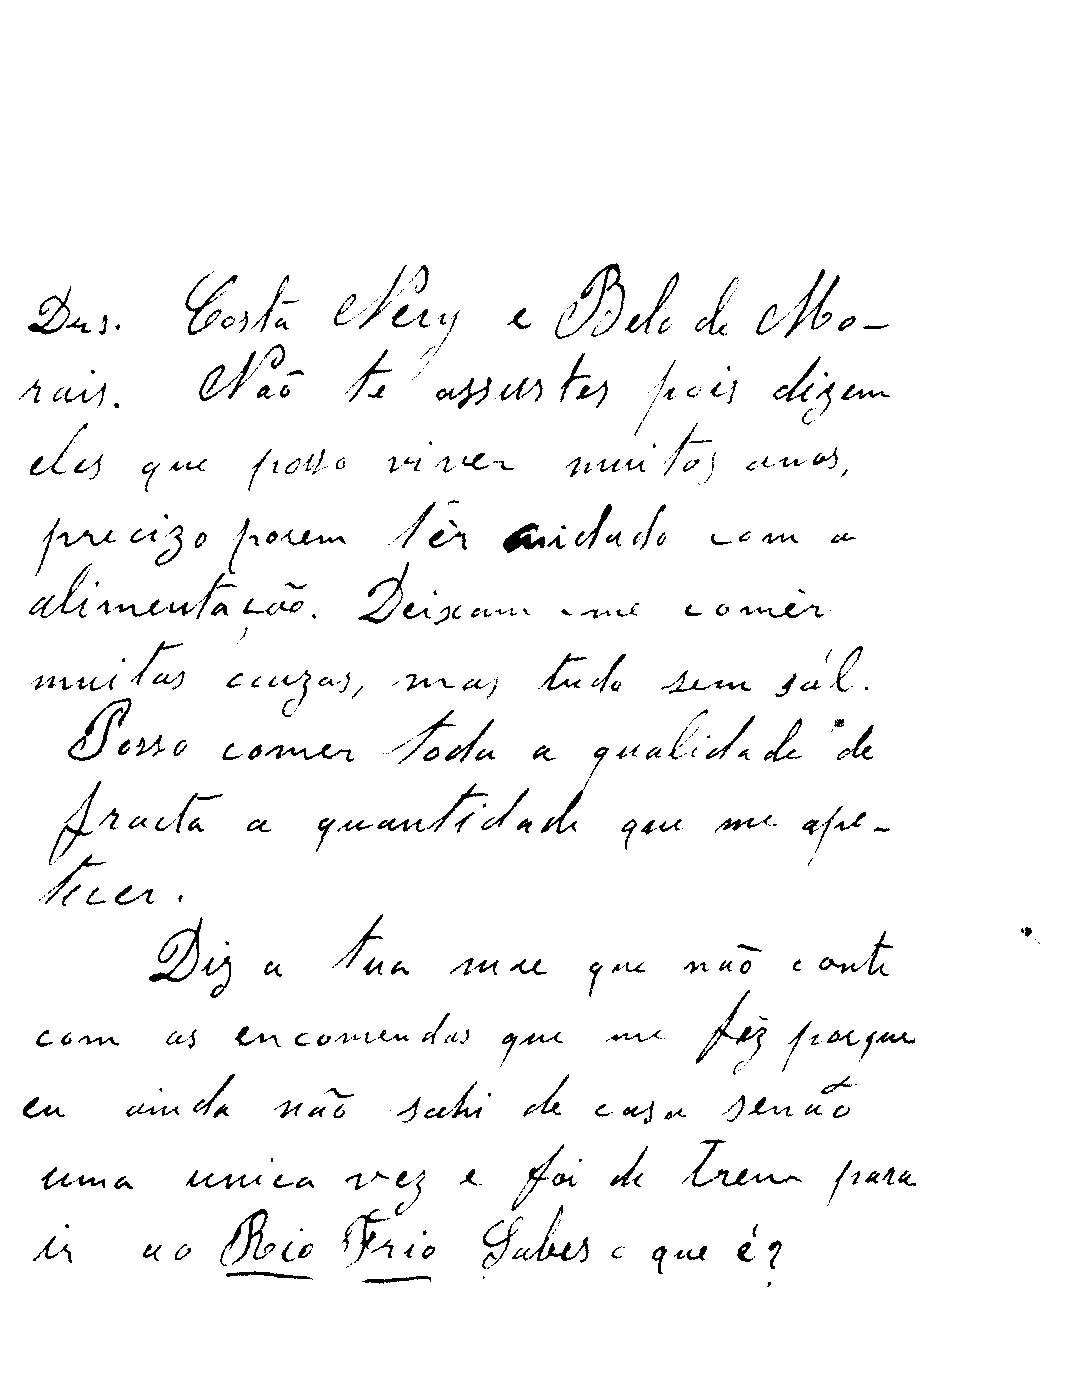 Drs. Costa Nery e Belo de Mo-
rais. Não te assustes pois dizem
eles que posso viver muitos anos,
precizo porem têr cuidado com a
alimentação. Deixam-me comêr
muitas couzas, mas tudo sem sál.
Posso comer toda a qualidade de
fructa a quantidade que me ape-
tecer.
Diz a tua mãe que não conte
com as encomendas que me fêz porque
eu ainda não sahi de casa senão
uma unica vez e foi de trem para
ir ao Rio Frio Sabes o que é?